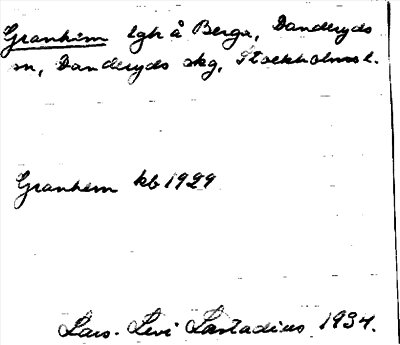 Granhem lgh å Berga, Danderyds
sn, Danderyds skg, Stockholms l.
Granhem kb 1929
Lars-Levi Læstadius 1934.